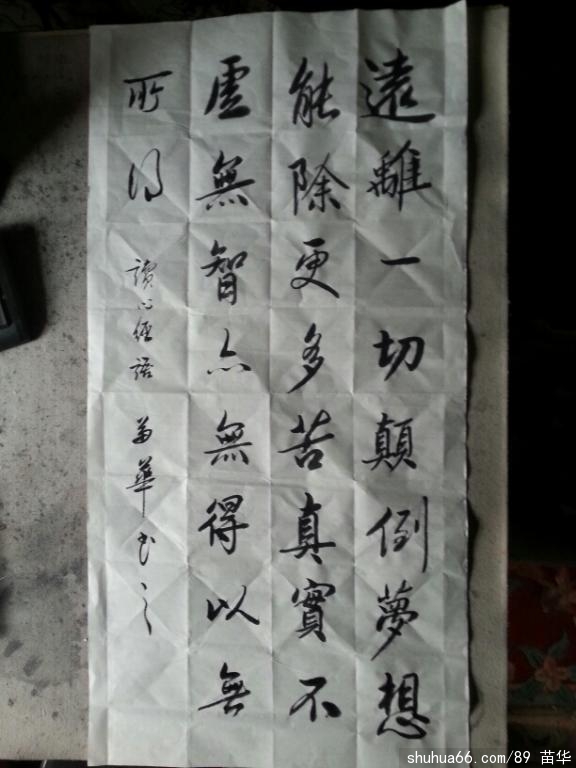 遠離一切顛倒夢想
能除更多苦真實不
虛無智亦無得以無
所得
讀心經語 苗華书之
shuhua66.com/89 苗华